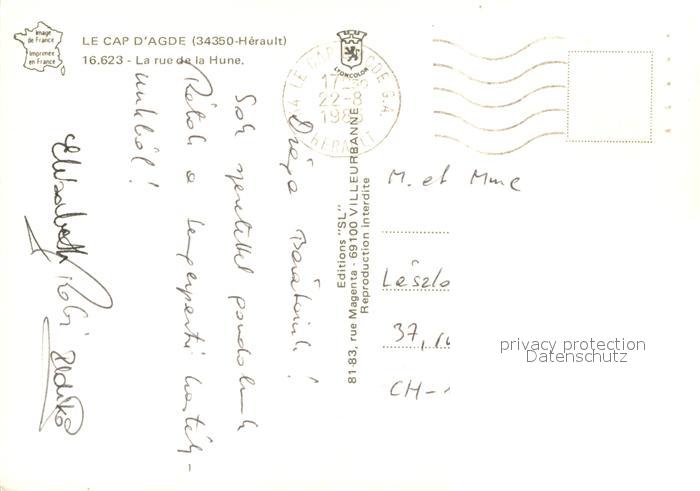 Image
de France
Imprimée
en France
LE CAP D'AGDE (34350-Hérault)
16.623 - La rue de la Hune.
LYONCOLOR
34 LE CAP D'AGDE G.A.
22-8
HERAULT
Drága Barátaink!
Sok szeretettel gondolunk
Rátok a tengerparti kastély-
unkból!
Elisabeth Robi Ildikó
Editions "SL"
81-83, rue Magenta - 69100 VILLEURBANNE
Reproduction interdite
M. et Mme
László
37, ru
CH-
privacy protection
Datenschutz